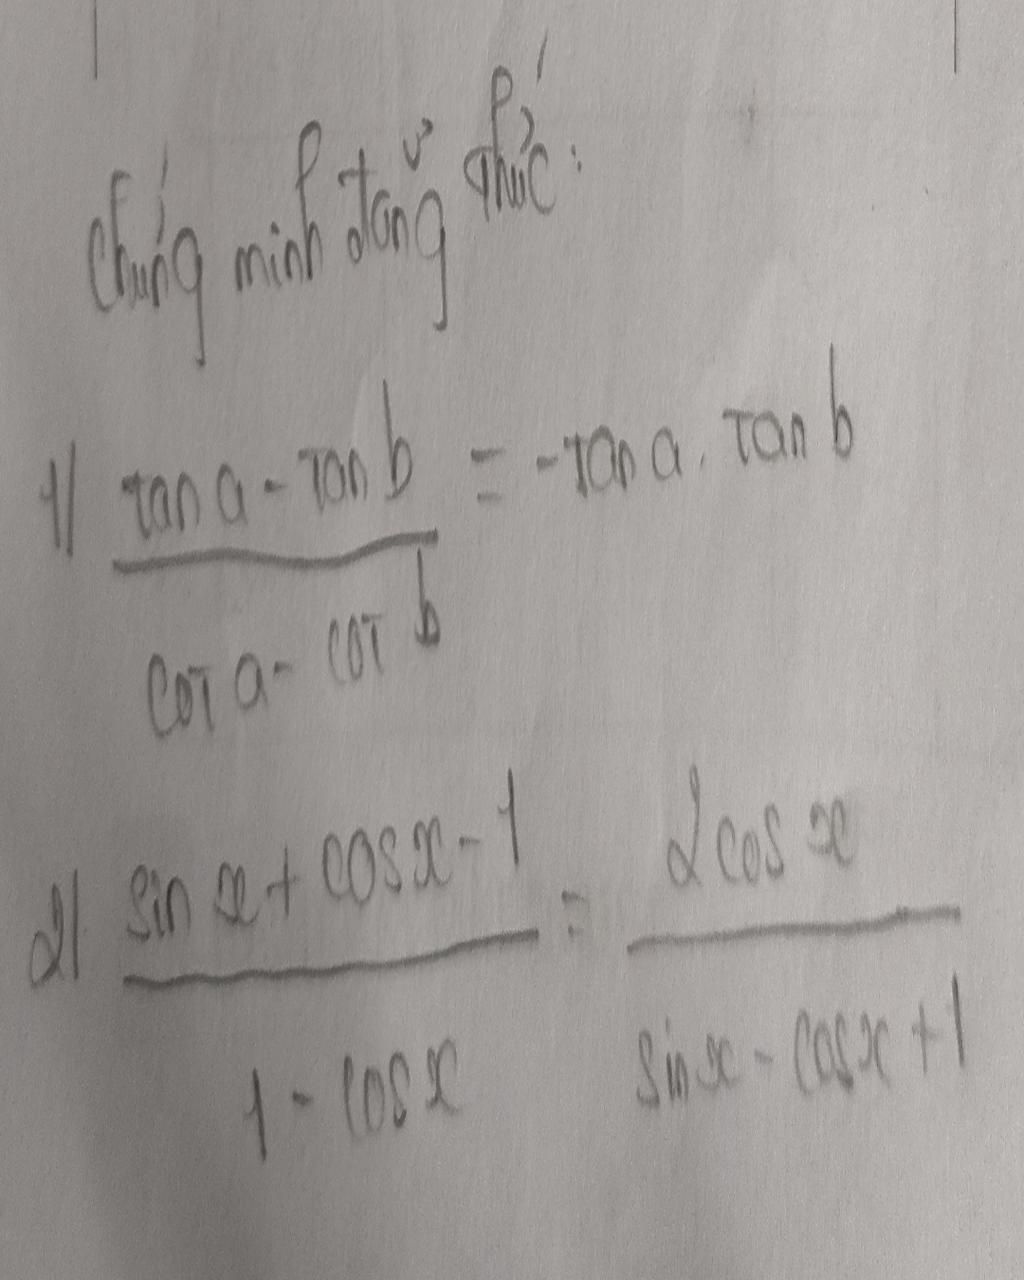 Chứng minh đẳng thức:
1// tan a - tan b = -tan a. tan b
cot a - cot b
2// sin x + cos x - 1 = 2 cos x
1 - cos x sin x - cos x + 1